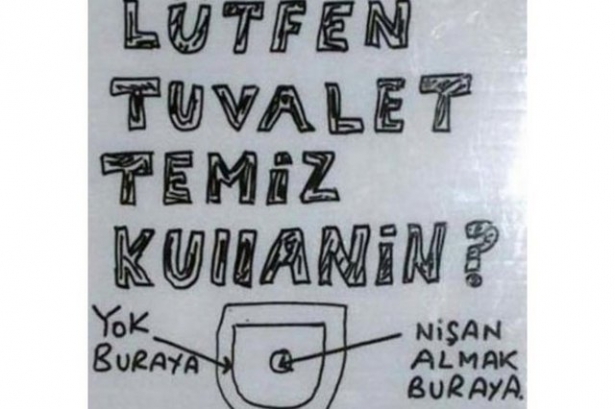 LUTFEN
TUVALET
TEMİZ
KUllANİN?
YOK
BURAYA
NİŞAN
ALMAK
BURAYA.